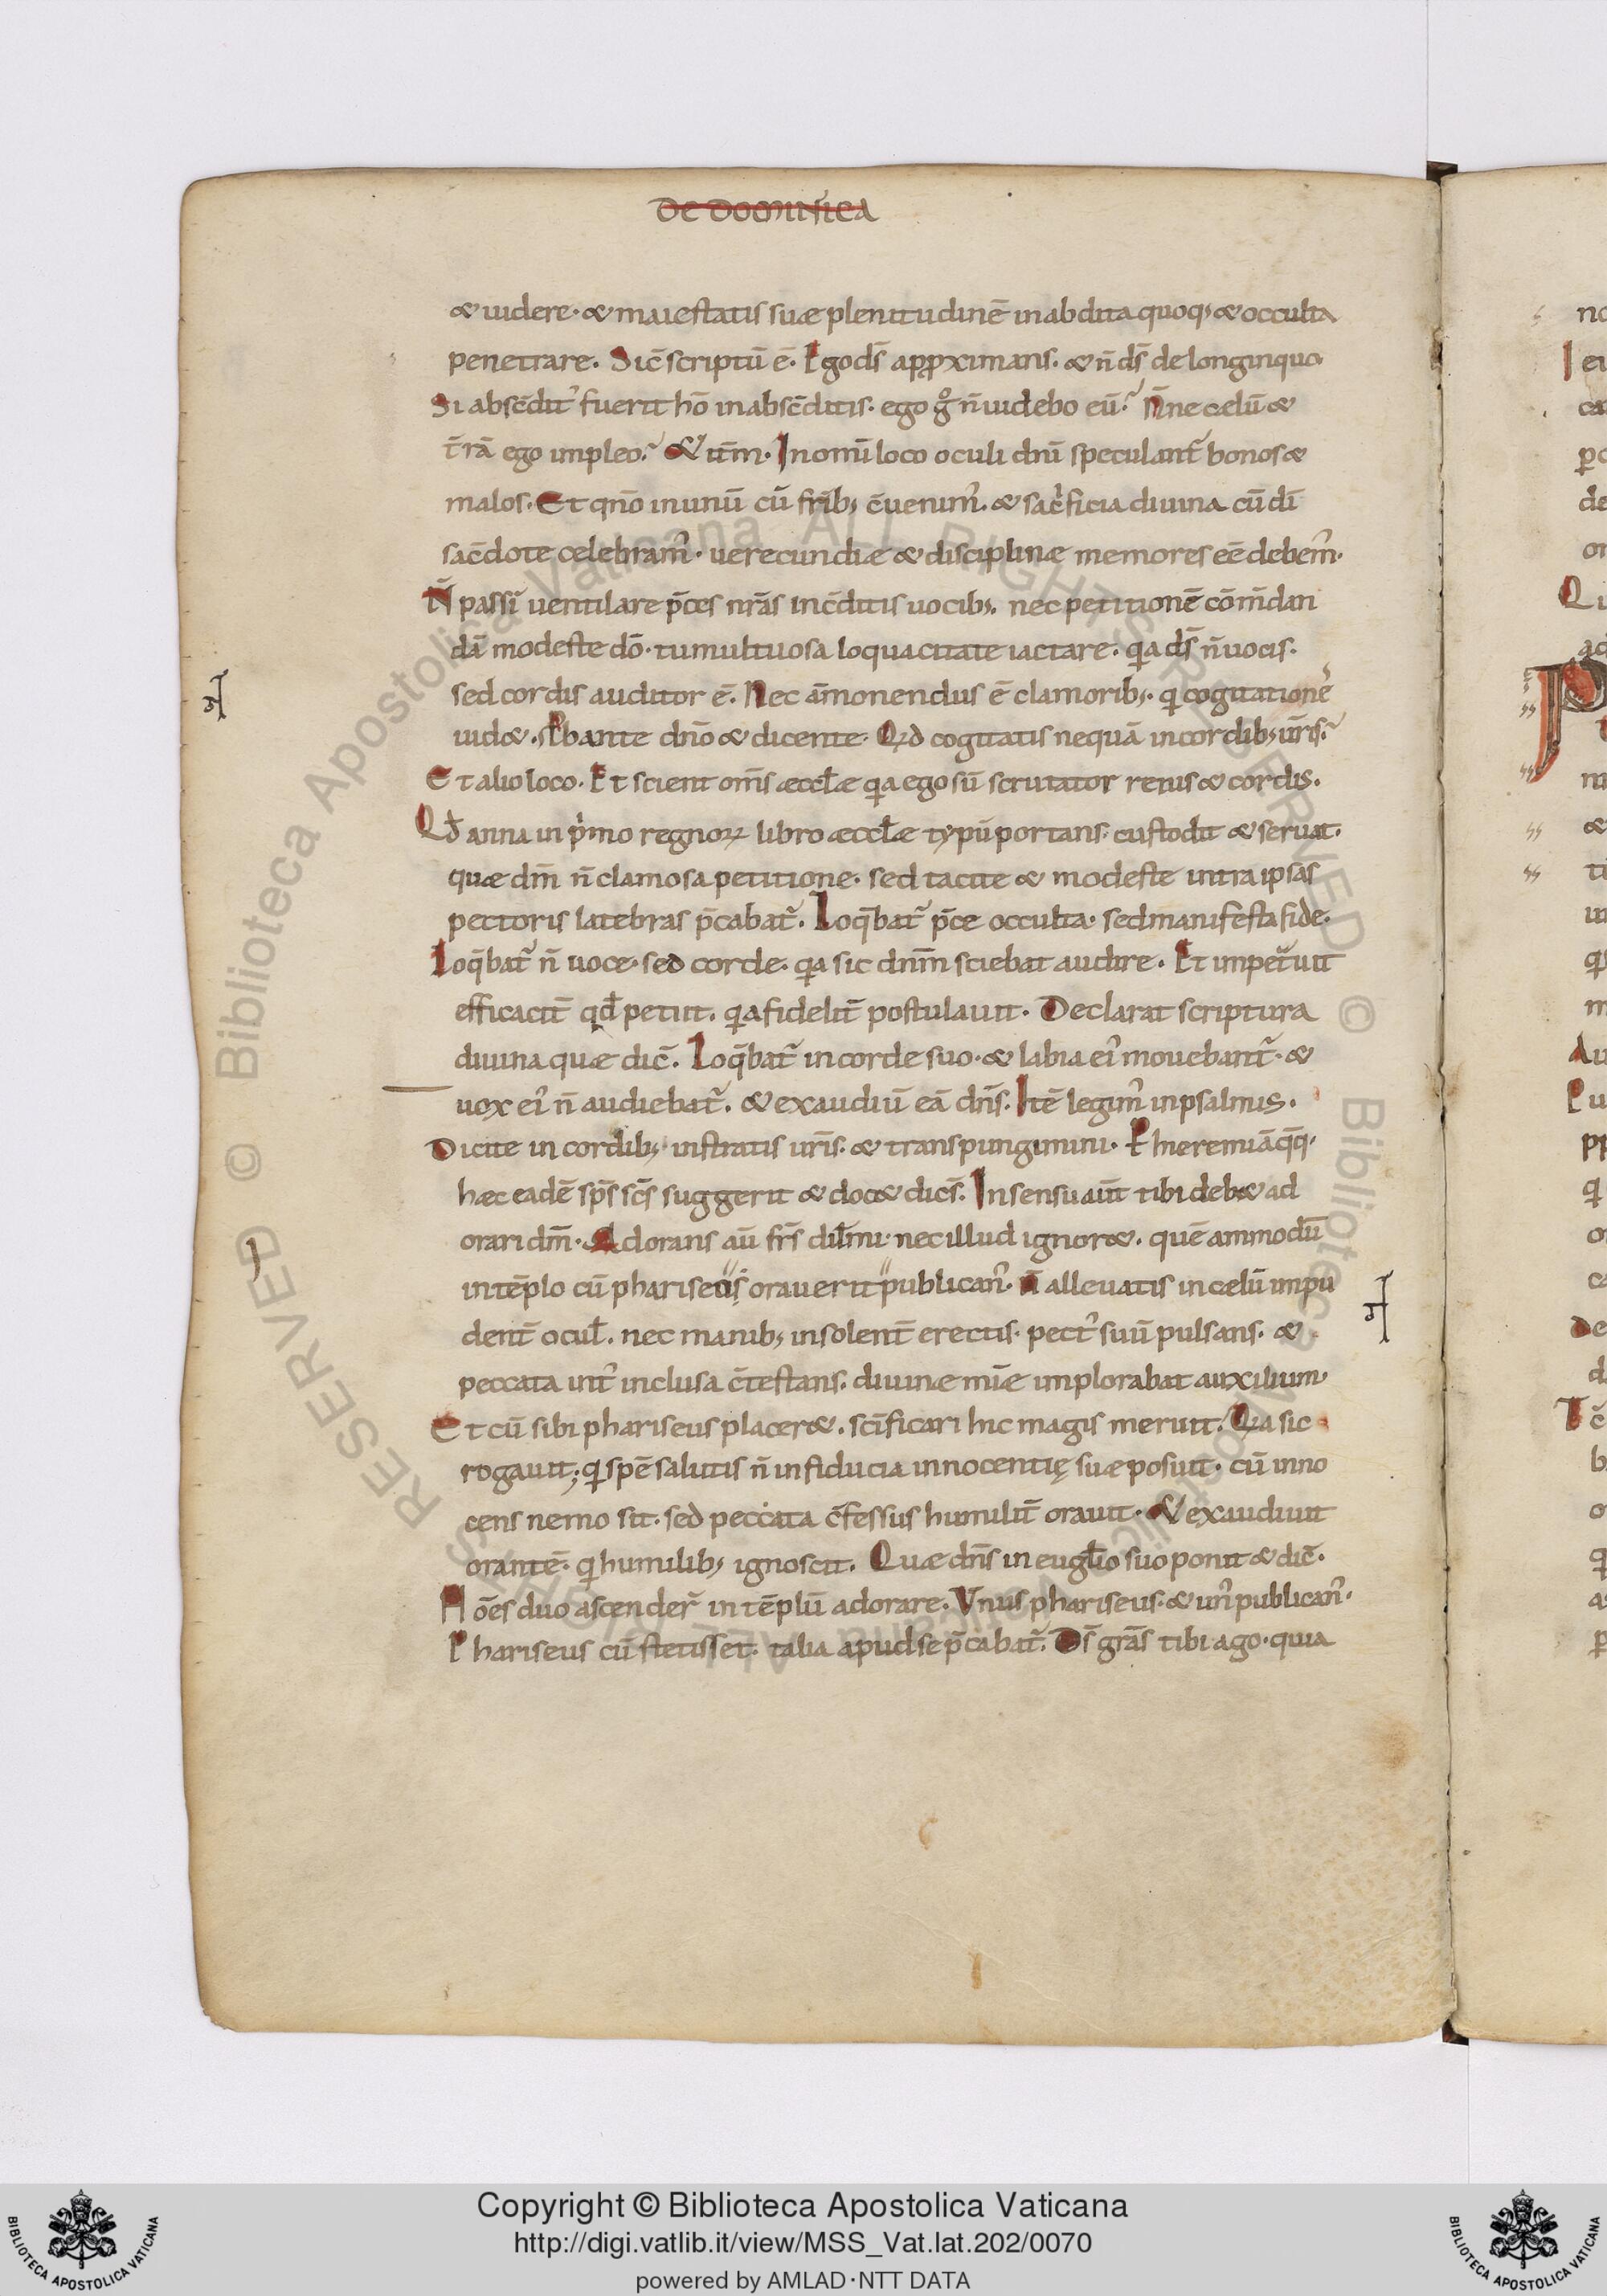 De Dominica
& uidere· & maiestatis suæ plenitudinē in abdita quoq; & occulta
penetrare. Sic̄ scriptū ē. Ego ds̄ appximans. & n̄ ds̄ de longinquo
Si absc̄dit᾽ fuerit hō in absc̄ditis. ego gº n̄ uidebo eū? N̄ne cælū &
t̄rā ego impleo? & it̄m. In omī loco oculi dnī speculant᷑ bonos &
malos. Et qn̄o in unū cū frīb; c̄uenim᾽. & sacͥficia diuina cū dī
sac̄dote celebram᾽. uerecundiæ & disciplinæ memores eē debem᾽.
N̄ passī uentilare p̄ces nr̄as inc̄ditis uocib;. nec petitionē cōm̄dan
dā modeste dō· tumultuosa loquacitate iactare. qͥa ds̄ n̄ uocis.
sed cordis auditor ē. Nec am̄onendus ē clamorib;. qͥ cogitationē
uid&. Pbante dn̄o & dicente. Qͥd cogitatis nequā in cordib; ur̄is?
Et alio loco. Et scient om̄s æccłæ qͥa ego sū scrutator renis & cordis.
Qd̄ anna in pͥmo regnoꝝ libro æccłæ typū portans. custodit & seruat.
quæ dm̄ n̄ clamosa petitione. sed tacite & modeste intra ipsas
pectoris latebras p̄cabat᷑. Loq̄bat᷑ p̄ce occulta. sed manifesta fide.
Loq̄bat᷑ n̄ uoce. sed corde. qͥa sic dnm̄ sciebat audire. Et impet᷑uit
efficacit̄ qd̄ petiit. qͥa fidelit̄ postulauit. Declarat scriptura
diuina quæ dic̄. Loq̄bat᷑ in corde suo. & labia ei᾽ mouebant᷑. &
uox ei᾽ n̄ audiebat᷑. & exaudiū eā dn̄s. Itē legim᾽ in psalmis.
Dicite in cordib;. instratis ur̄is. & transpungimini. P hieremiā q̄q.
hæc eadē sps̄ sc̄s suggerit & doc& dicēs. In sensu aūt tibi deb& ad
orari dm̄. Adorans aū fr̄s diłmi. nec illud ignor&. quē ammodū
in tēplo cū phariseus orauerit publican᾽. n̄ alleuatis in cælū impu
dent̄ ocuł. nec manib; insolent̄ erectis. pect᾽ suū pulsans. &
peccata int᾽ inclusa c̄testans. diuinæ mīæ implorabat auxilium.
Et cū sibi phariseus placer&. scīficari hic magis meruit. Qͥa sic
rogauit; qͥ spē salutis n̄ in fiducia innocentię suæ posuit. cū inno
cens nemo sit. sed peccata c̄fessus humilit̄ orauit. & exaudiuit
orantē. qͥ humilib; ignoscit. Quæ dn̄s in eugłio suo ponit & dic̄.
Hōes duo ascender᷑ in tēplū adorare. Vnus phariseus. & un᾽ publican᾽.
Phariseus cū stetisset. talia apud se p̄cabat᷑. Ds̄ grās tibi ago. quia
Copyright © Biblioteca Apostolica Vaticana
http://digi.vatlib.it/view/MSS_Vat.lat.202/0070
powered by AMLAD·NTT DATA